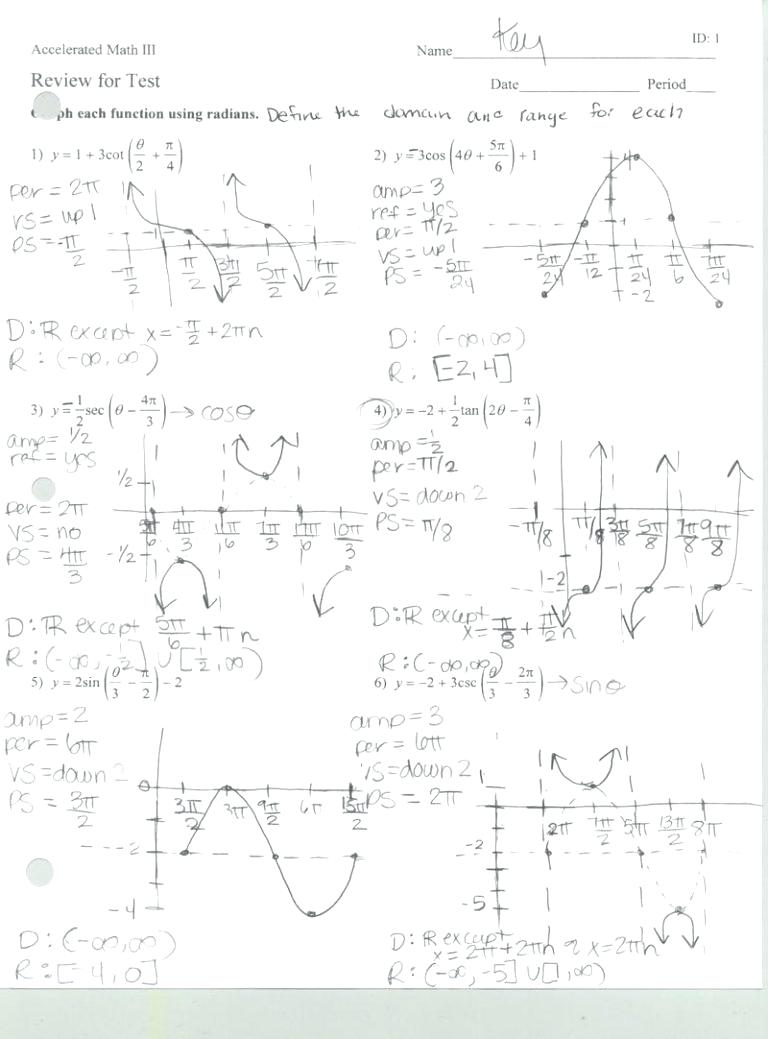 Accelerated Math III
Name Key
ID: 1
Review for Test
Date Period
ph each function using radians. Define the domain and range for each
1) y = 1 + 3cot(θ/2 + π/4)
per = 2π
VS = up 1
PS = -π/2
-π/2 π/2 3π/2 5π/2 7π/2
D: ℝ except x = -π/2 + 2πn
R: (-∞, ∞)
2) y = -3cos(4θ + 5π/6) + 1
amp = 3
ref = yes
per = π/2
VS = up 1
PS = -5π/24
-5π/24 -π/12 π/24 π/6 7π/24
-2
D: (-∞, ∞)
R: [-2, 4]
3) y = -1/2 sec(θ - 4π/3) → cosθ
amp = 1/2
ref = yes
per = 2π
VS = no
PS = 4π/3
1/2
-1/2
5π/6 4π/3 11π/6 7π/3 17π/6 10π/3
D: ℝ except 5π/6 + πn
R: (-∞, -1/2] ∪ [1/2, ∞)
4) y = -2 + 1/2 tan(2θ - π/4)
amp = 1/2
per = π/2
VS = down 2
PS = π/8
-π/8 π/8 3π/8 5π/8 7π/8 9π/8
-2
D: ℝ except
x = π/8 + π/2 n
R: (-∞, ∞)
5) y = 2sin(θ/3 - π/2) - 2
amp = 2
per = 6π
VS = down 2
PS = 3π/2
0
3π/2 3π 9π/2 6π 15π/2
-2
-4
D: (-∞, ∞)
R: [-4, 0]
6) y = -2 + 3csc(θ/3 - 2π/3) → sinθ
amp = 3
per = 6π
VS = down 2
PS = 2π
1
2π 7π/2 5π 13π/2 8π
-2
-5
D: ℝ except
x = 2π + 2πn x = 2πn
R: (-∞, -5] ∪ [1, ∞)